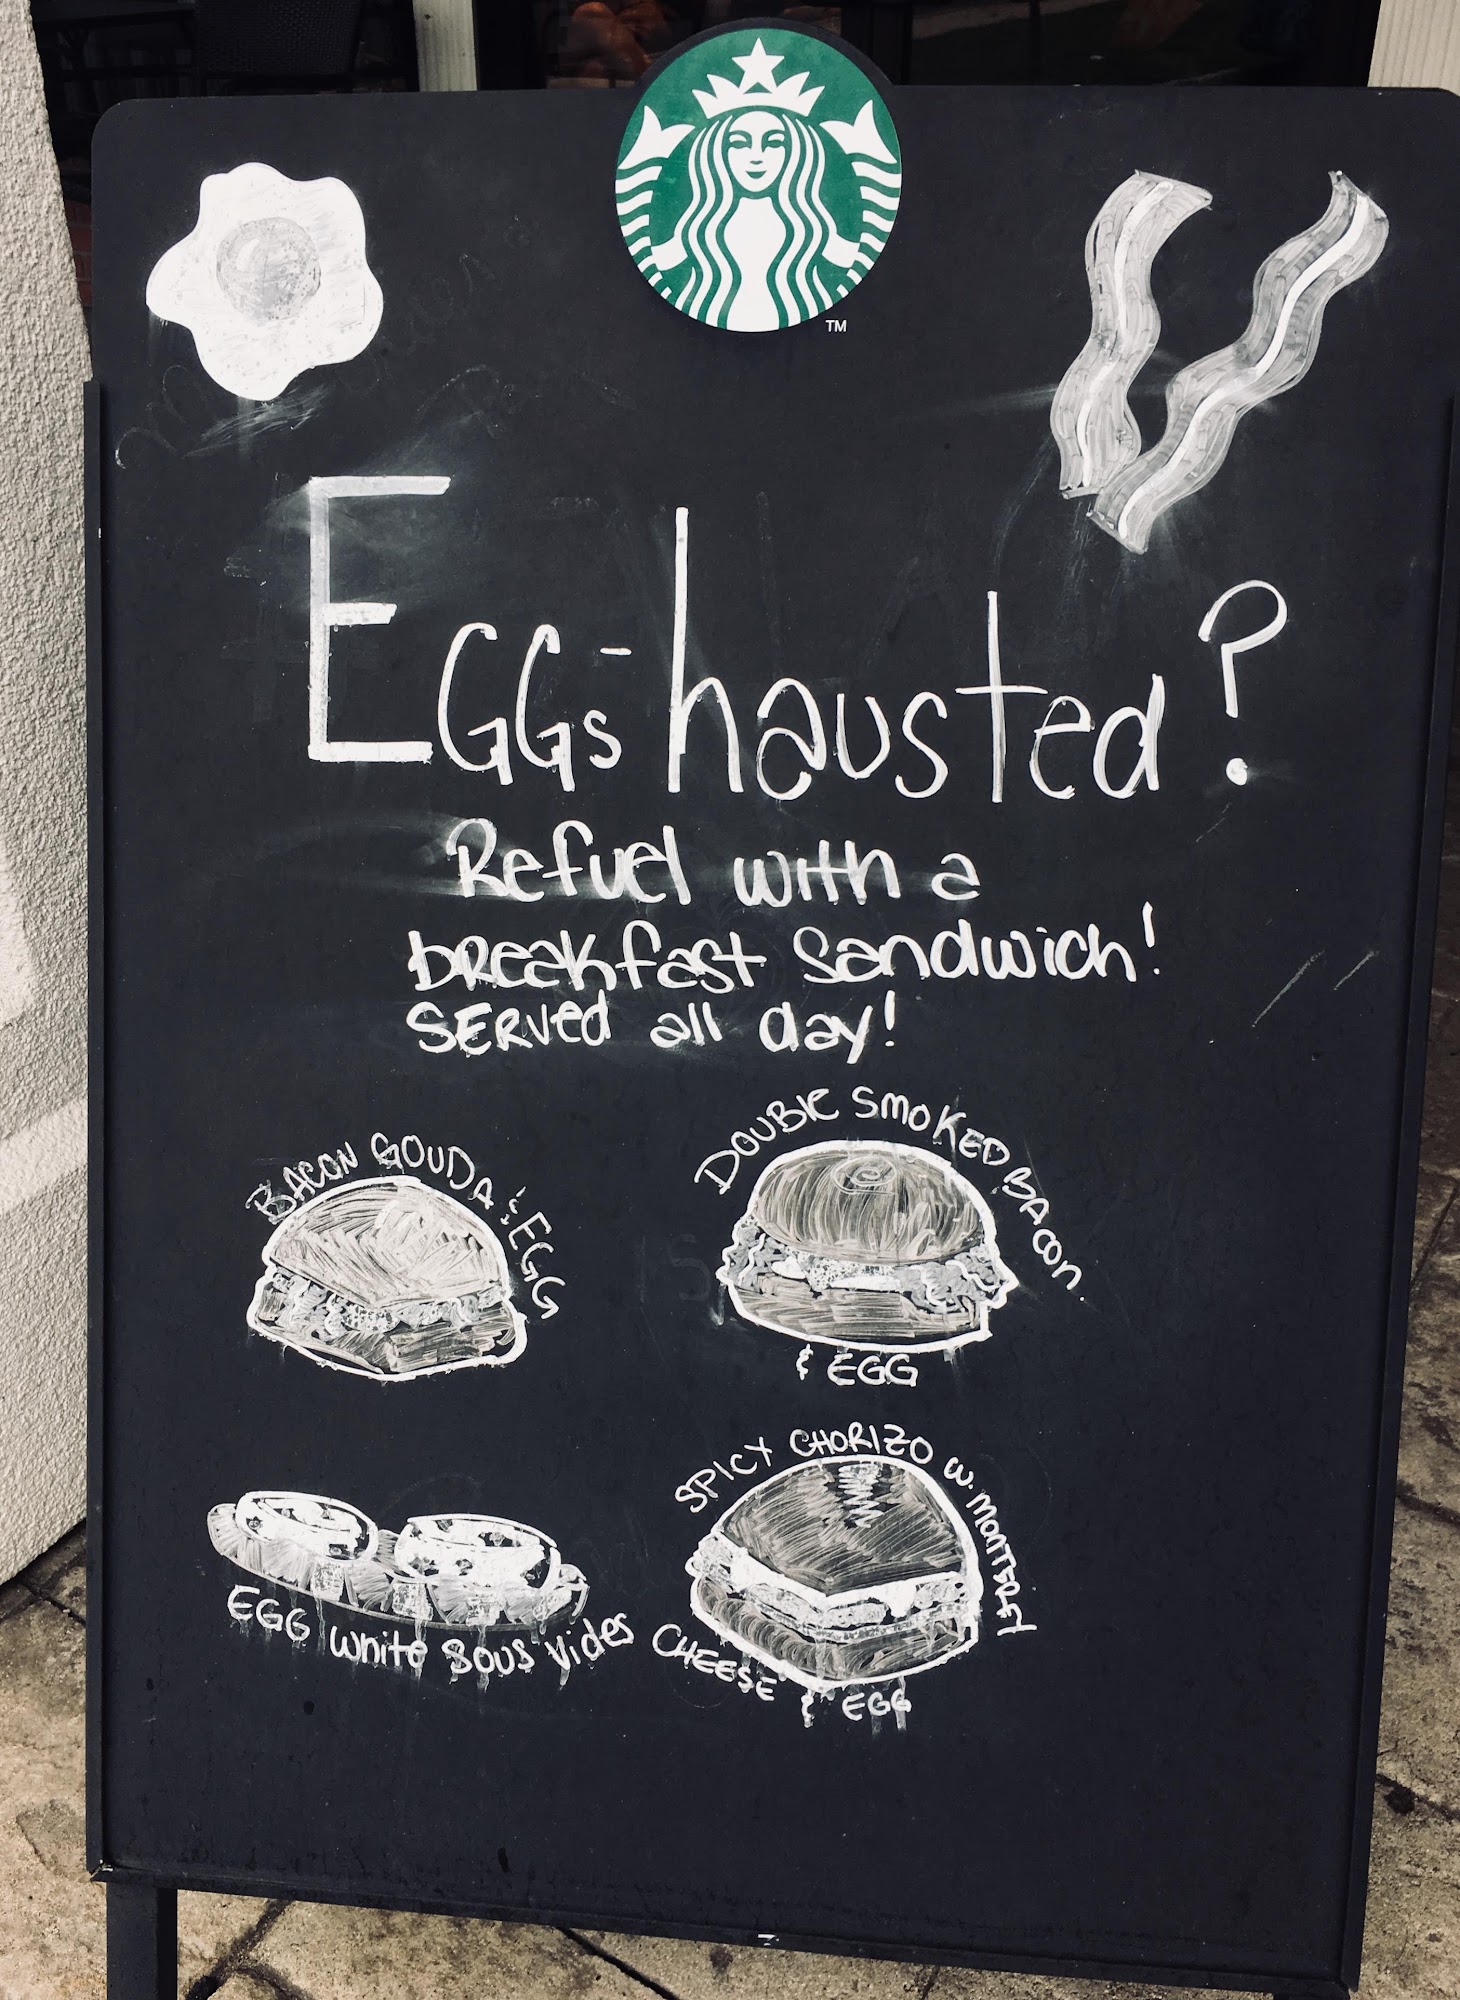 TM
EGGs-hausted?
Refuel with a
breakfast sandwich!
SERVED all day!
BACON GOUDA & EGG
DOUBLE SMOKED BACON
& EGG
EGG white Sous Vides
SPICY CHORIZO w. MONTEREY
CHEESE & EGG